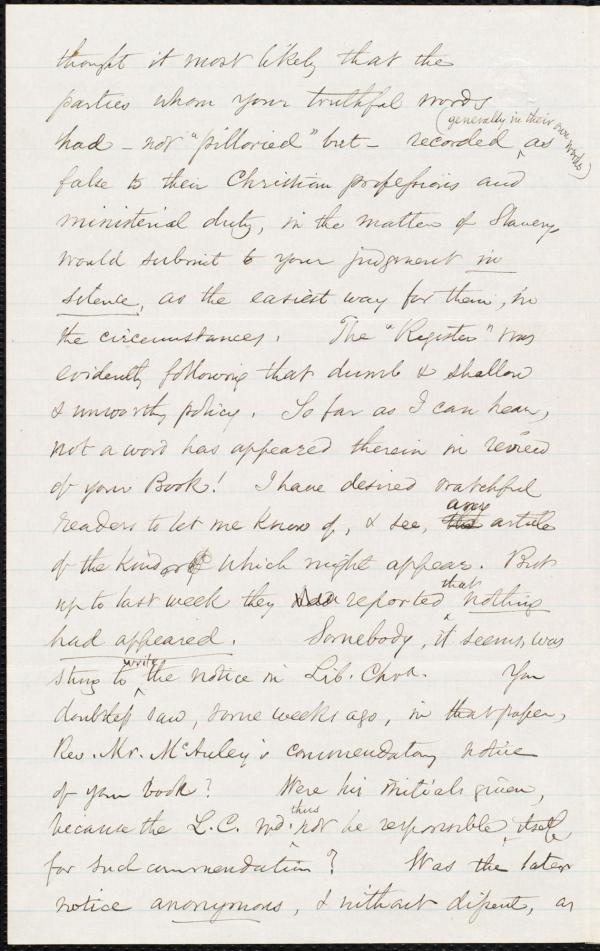 thought it most likely that the
parties whom your truthful words
(generally in their own words)
had - not "pilloried" but - recorded as
false to their Christian professions and
ministerial duty, in the matter of Slavery,
would submit to your judgment in
silence, as the easiest way for them, in
the circumstances. The "Register" was
evidently following that dumb & shallow
& unworthy policy. So far as I can hear,
not a word has appeared therein in review
of your Book! I have desired watchful
any
readers to let me know of, & see, the article
of the kind which might appear. But
that
up to last week they had reported nothing
had appeared. Somebody, it seems, was
write
stung to the notice in Lib. Chrn. You
doubtless saw, some weeks ago, in that paper,
Rev. Mr. McAuley's commendatory notice
of your book? Were his initials given,
thus
because the L.C. wd. not be responsible, itself,
for such commendation? Was the later
notice anonymous, & without dissent, as